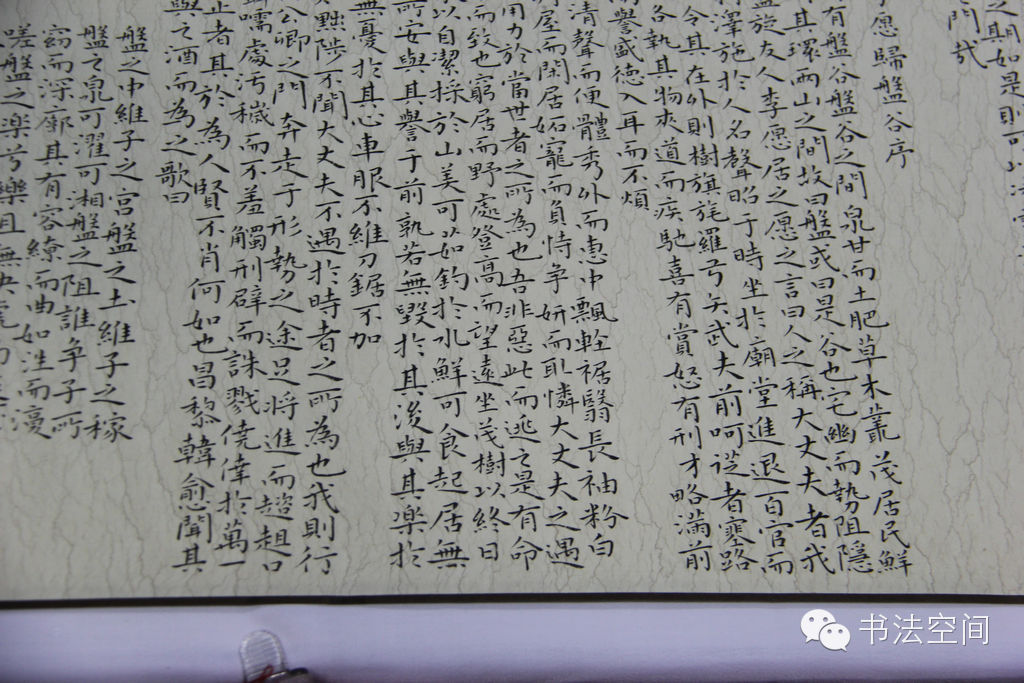 之期如是則可以
門哉
愿歸盤谷序
有盤谷盤谷之間泉甘而土肥草木叢茂居民鮮
其環兩山之間故曰盤或曰是谷也宅幽而勢阻隱
盤旋友人李愿居之愿之言曰人之稱大丈夫者我
澤施於人名聲昭于時坐於廟堂進退百官而
令其在外則樹旗旄羅弓矢武夫前呵從者塞路
各執其物夾道而疾馳喜有賞怒有刑才略滿前
而譽盛德入耳而不煩
清聲而便體秀外而惠中飄輕裾翳長袖粉白
屋而閑居妬寵而負恃爭妍而取憐大丈夫之遇
用力於當世者之所為也吾非惡此而逃之是有命
而致也窮居而野處登高而望遠坐茂樹以終日
以自潔採於山美可茹釣於水鮮可食起居無
所安與其譽于前孰若無毀於其後與其樂於
無憂於其心車服不維刀鋸不加
黜陟不聞大丈夫不遇於時者之所為也我則行
公卿之門奔走于形勢之途足將進而趑趄口
嚅處汙穢而不羞觸刑辟而誅戮僥倖於萬一
止者其於為人賢不肖何如也昌黎韓愈聞其
與之酒而為之歌曰
盤之中維子之宮盤之土維子之稼
盤之泉可濯可湘盤之阻誰爭子所
窈而深廓其有容繚而曲如往而復
嗟盤之樂兮樂且無央
书法空间